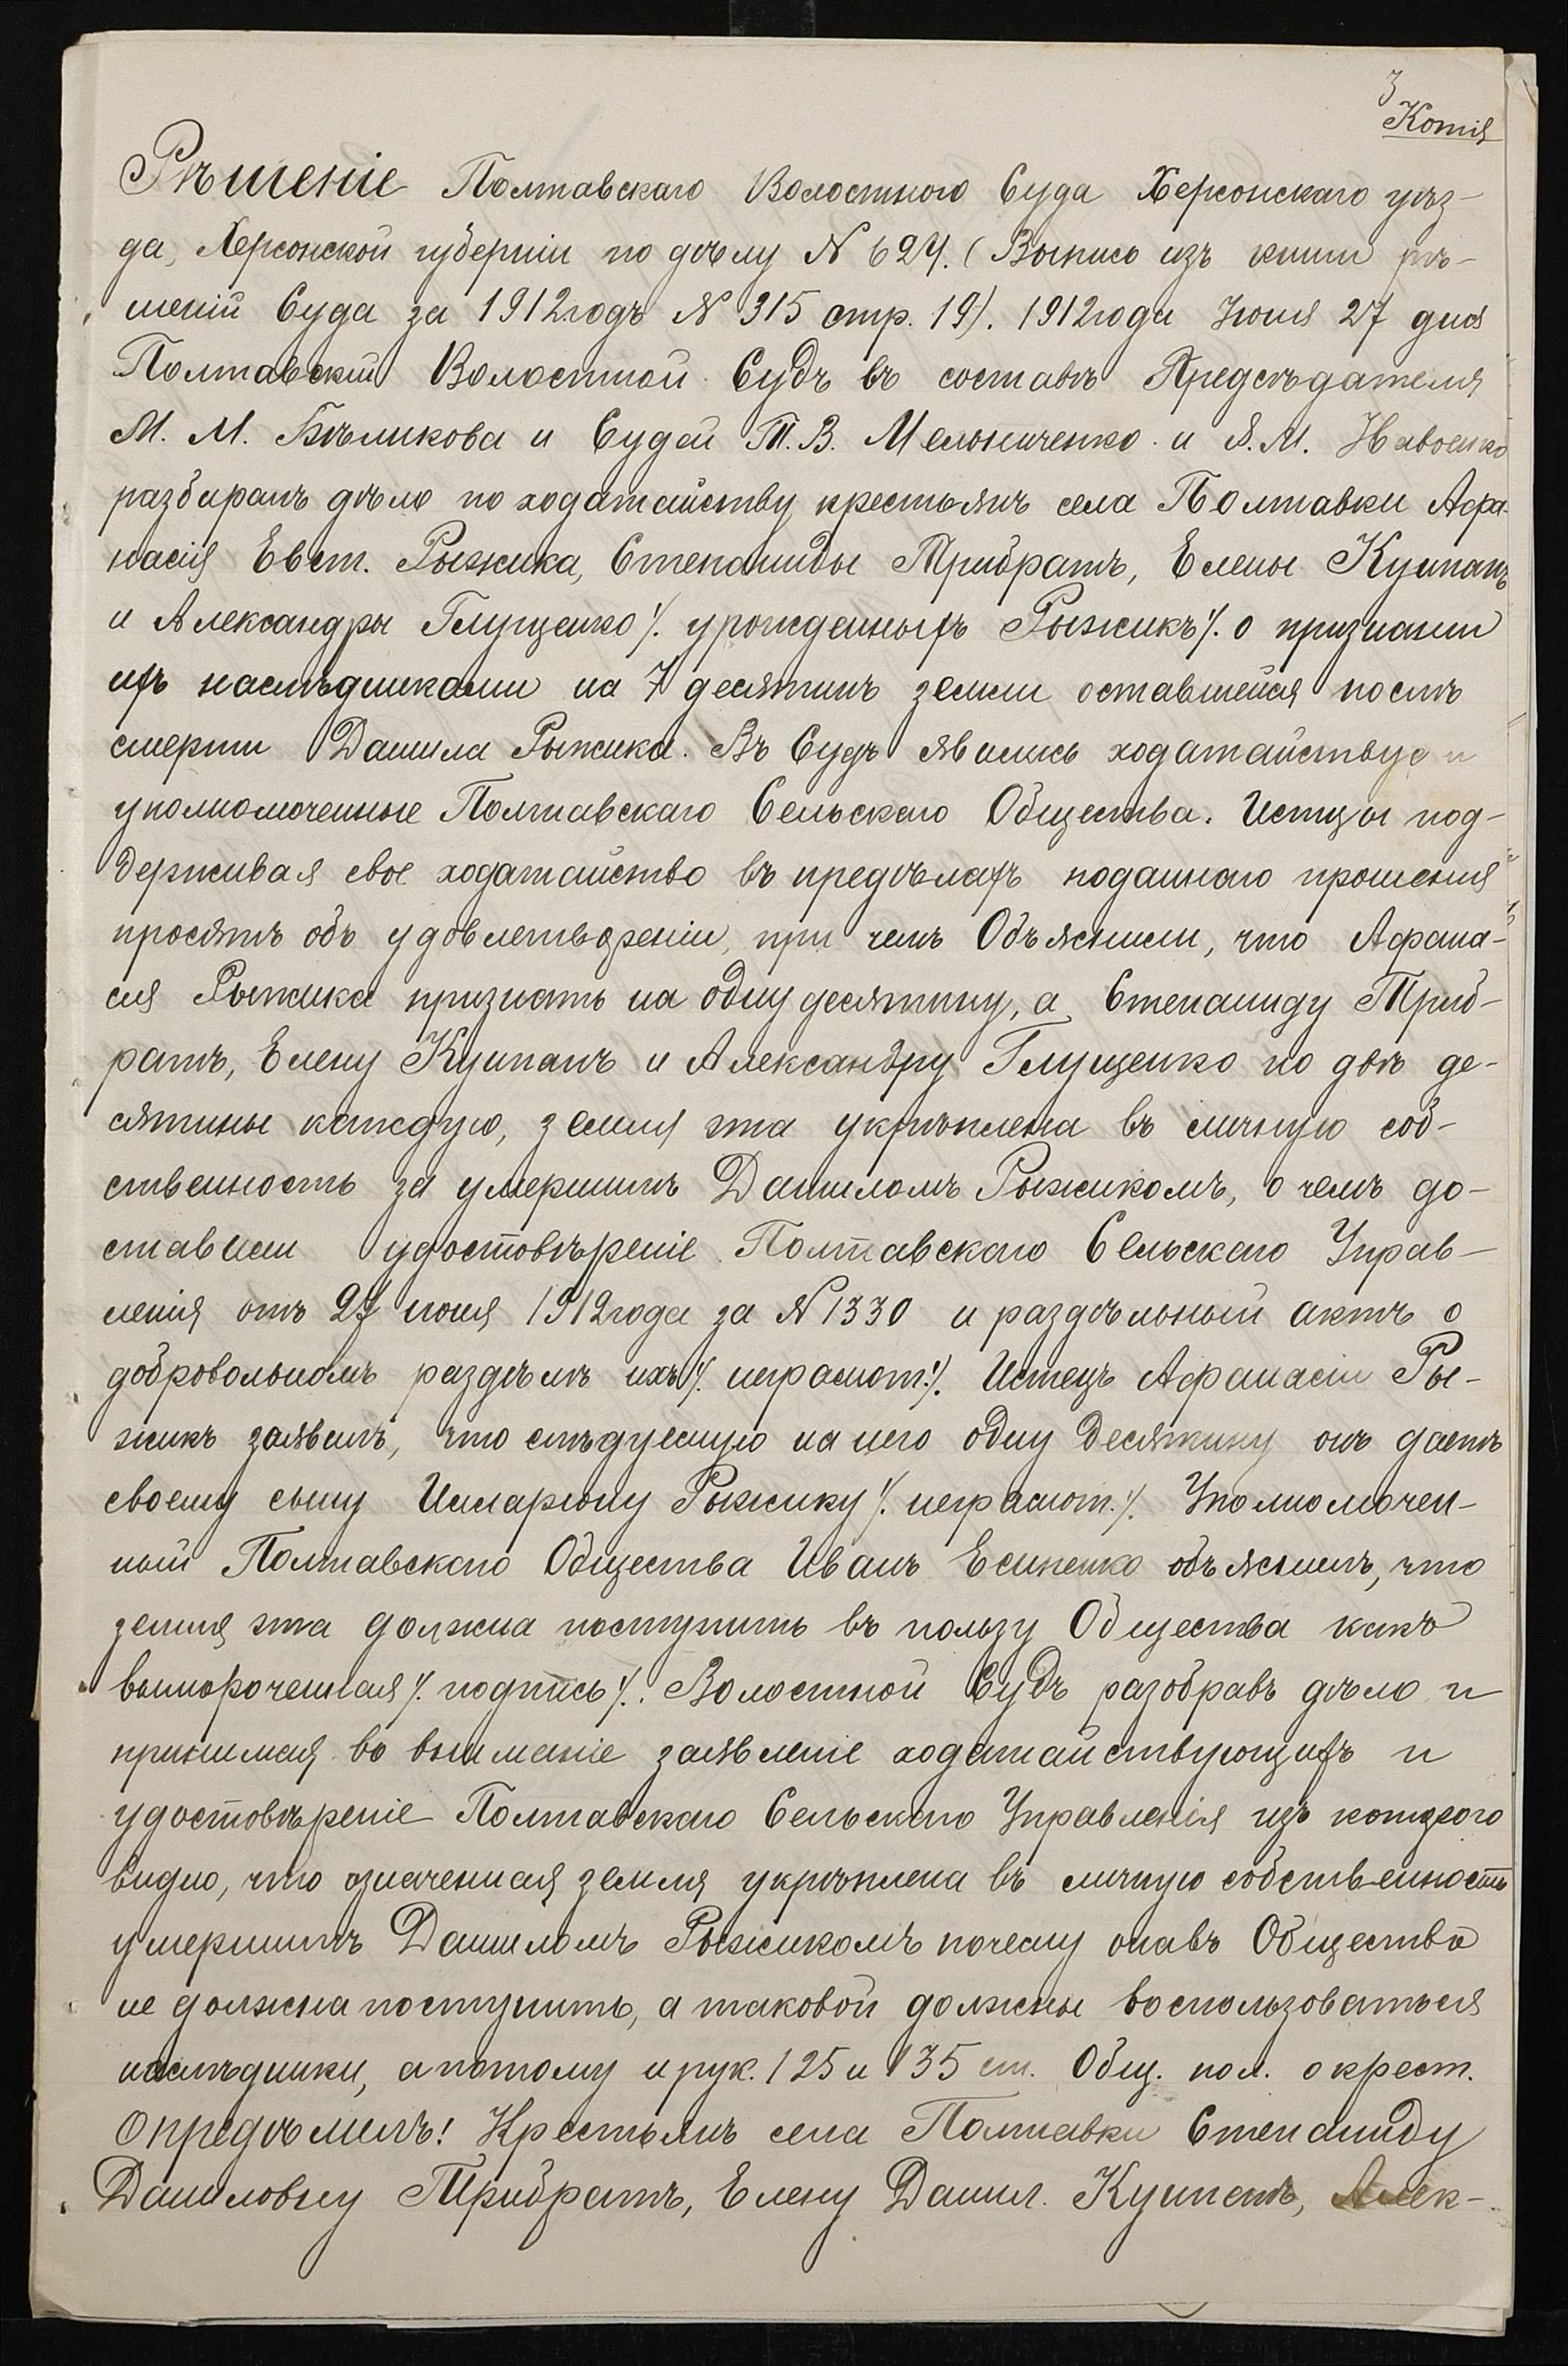 3
Копія
Рѣшеніе Полтавскаго Волостного Суда Херсонскаго уѣз-
да, Херсонской губерніи по дѣлу N 624. (Выпись изъ книги рѣ-
шеній Суда за 1912 годъ N 315 стр. 19). 1912 года Іюня 27 дня
Полтавскій Волостной Судъ въ составѣ Предсѣдателя
М. М. Бѣликова и Судей Т. В. Мельниченко и Я. М. Навоенко
разбиралъ дѣло по ходатайству крестьянъ села Полтавки Афа-
насія Евст. Рыжика, Степаниды Трибратъ, Елены Кушпатъ
и Александры Глущенко ./. урожденныхъ Рыжикъ ./. о признании
ихъ наслѣдниками на 7 десятинъ земли оставшейся послѣ
смерти Данила Рыжика. Въ Судъ явились ходатайствуе и
уполномоченные Полтавскаго Сельскаго Общества. Истцы под-
держивая свое ходатайство въ предѣлахъ поданнаго прошения
просятъ объ удовлетвореніи, при чемъ Объяснили, что Афана-
сия Рыжика признать на одну десятину, а Степаниду Триб-
ратъ, Елену Кушпатъ и Александру Глущенко по двѣ де-
сятины каждую, земля эта укрѣплена въ личную соб-
ственность за умершимъ Даниломъ Рыжикомъ, о чемъ до-
ставили удостовѣреніе Полтавскаго Сельскаго Управ-
ленія отъ 27 июня 1912 года за N 1330 и раздѣльный актъ о
добровольномъ раздѣлѣ ихъ ./. неграмот. ./. Истецъ Афанасій Ры-
жикъ заявилъ, что слѣдуемую на него одну десятину онъ даетъ
своему сыну Иллариону Рыжику ./. неграмот. ./. Уполномочен-
ный Полтавскаго Общества Иванъ Есипенко объяснилъ, что
земля эта должна поступить въ пользу Общества какъ
вымороченная ./. подпись ./. Волостной Судъ разобравъ дѣло и
принимая во внимание заявление ходатайствующихъ и
удостовѣрение Полтавскаго Сельскаго Управленія изъ которого
видно, что означенная земля укрѣплена въ личную собственность
умершимъ Даниломъ Рыжикомъ почему она въ Общество
не должна поступить, а таковой должны воспользоваться
наслѣдники, а потому и рук. 125 и 135 ст. Общ. пол. о крест.
Опредѣлилъ! Крестьянъ села Полтавки Степаниду
Даниловну Трибратъ, Елену Данил. Кушпатъ, Алек-